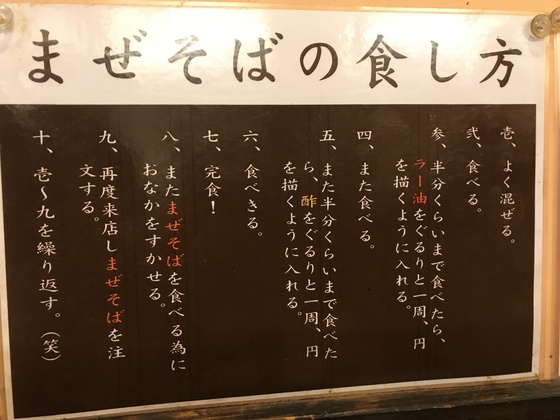 まぜそばの食し方
壱、よく混ぜる。
弐、食べる。
参、半分くらいまで食べたら、
ラー油をぐるりと一周、円
を描くように入れる。
四、また食べる。
五、また半分くらいまで食べた
ら、酢をぐるりと一周、円
を描くように入れる。
六、食べきる。
七、完食!
八、またまぜそばを食べる為に
おなかをすかせる。
九、再度来店しまぜそばを注
文する。
十、壱〜九を繰り返す。(笑)